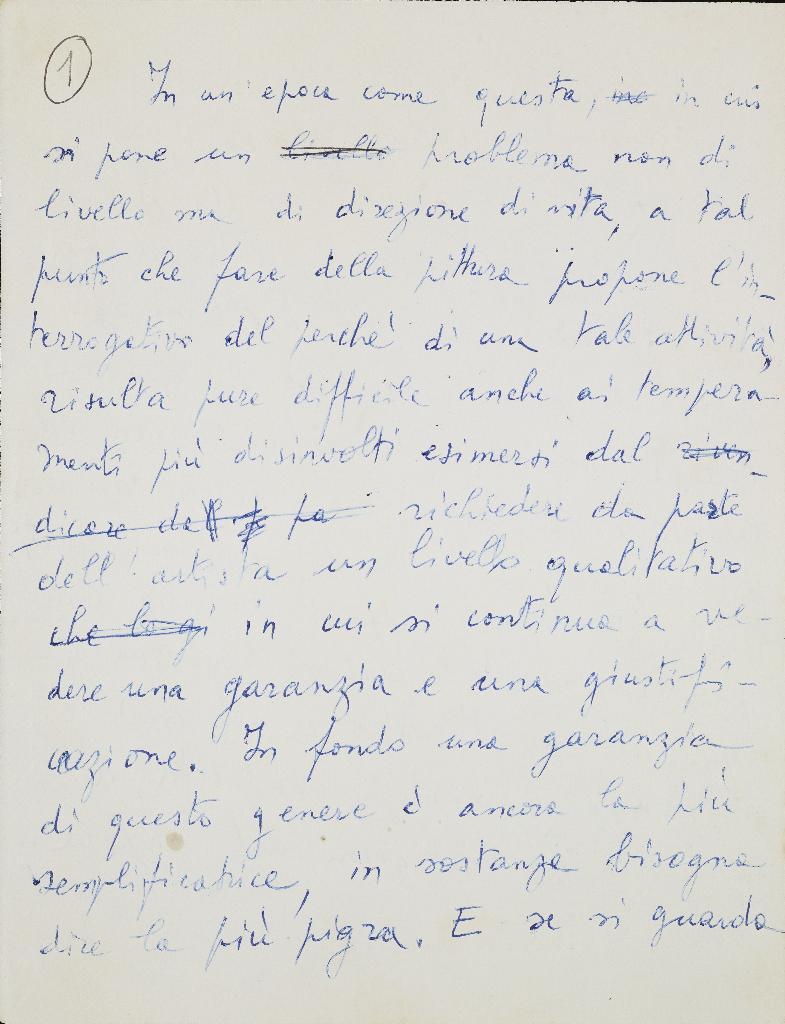 1
In un'epoca come questa, in cui
si pone un livello problema non di
livello ma di direzione di vita, a tal
punto che fare della pittura propone l'in-
terrogativo del perché di una tale attività,
risulta pure difficile anche ai tempera-
menti più disinvolti esimersi dal riven-
dicare dal pa richiedere da parte
dell'artista un livello qualitativo
che lo gi in cui si continua a ve-
dere una garanzia e una giustifi-
cazione. In fondo una garanzia
di questo genere è ancora la più
semplificatrice, in sostanza bisogna
dire la più pigra. E se si guarda